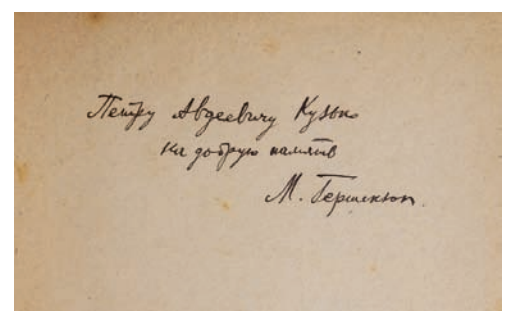 Петру Авдеевичу Кузько
на добрую память
М. Гершензон.